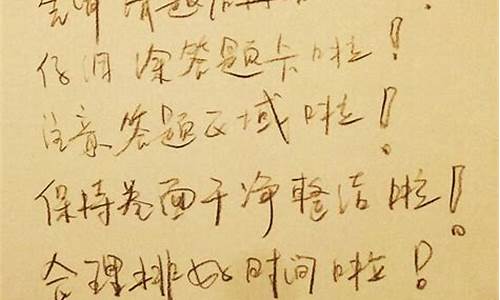 先审清题活
仔细涂答题卡啦！
注意答题区域啦！
保持卷面干净整洁啦！
合理排好时间啦！